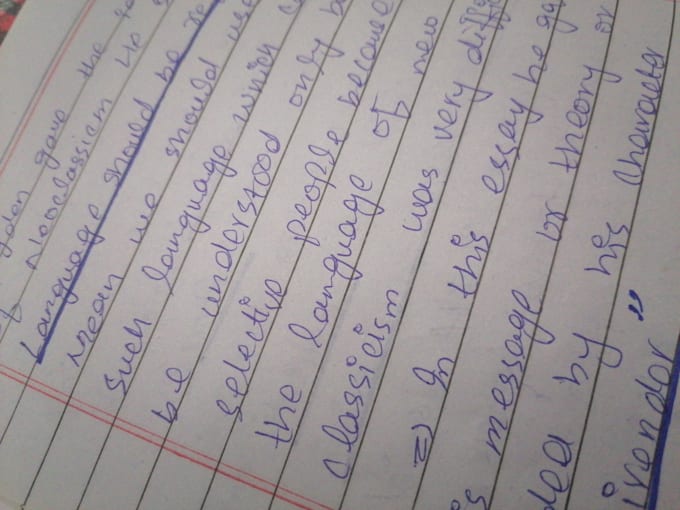 gave the
of Neoclassicm
Language should be
Mean we should use
such language which
be understood only
selective people because
the language of new
classicism was very
=> In this essay he
message or theory or
by his character